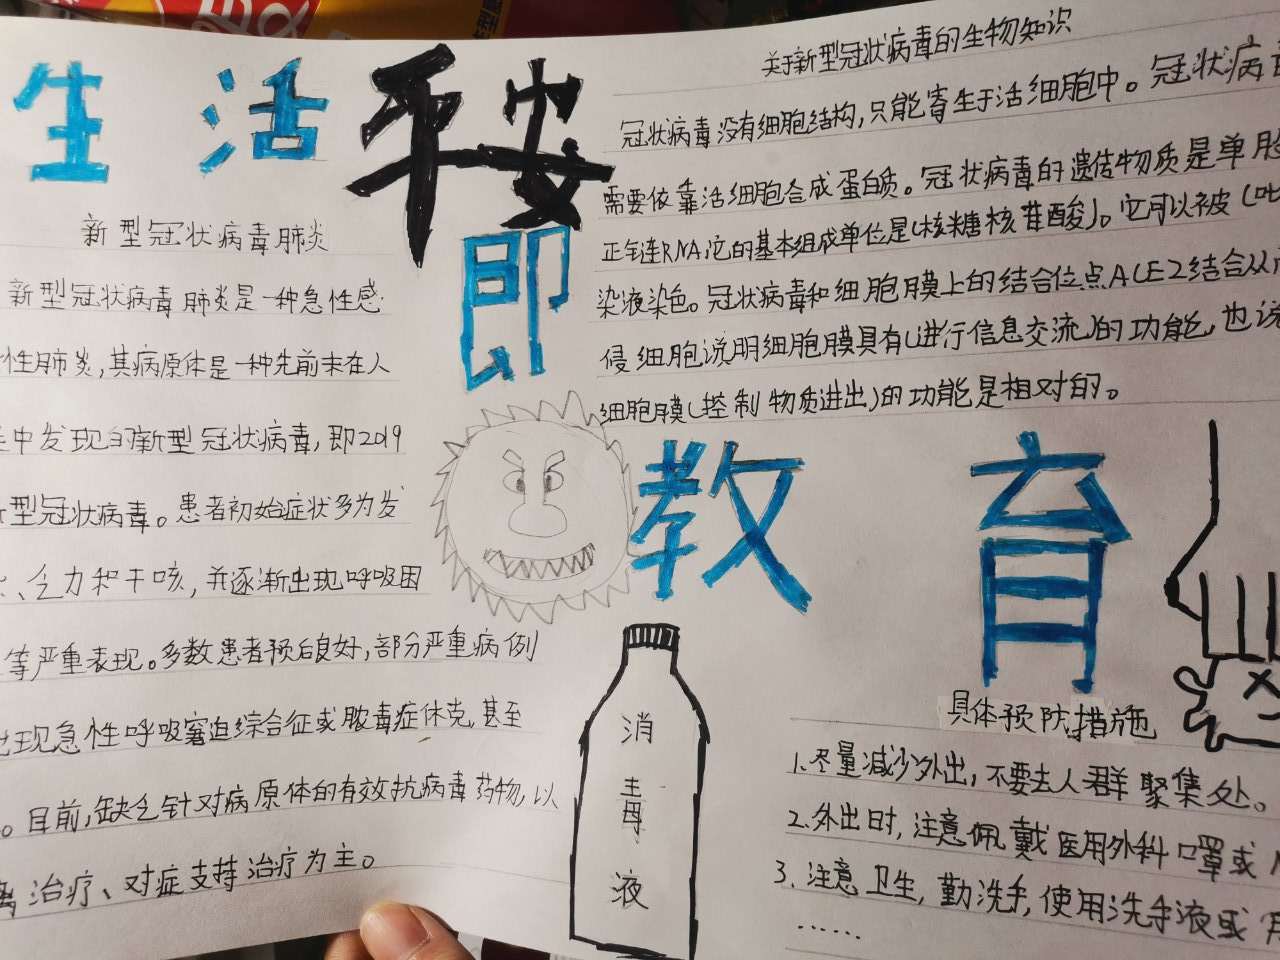 生活平安
即
教育
新型冠状病毒肺炎
新型冠状病毒肺炎是一种急性感
性肺炎,其病原体是一种先前未在人
中发现的新型冠状病毒,即2019
型冠状病毒。患者初始症状多为发
、乏力和干咳,并逐渐出现呼吸困
等严重表现。多数患者预后良好,部分严重病例
现急性呼吸窘迫综合征或脓毒症休克,甚至
。目前,缺乏针对病原体的有效抗病毒药物,以
离治疗、对症支持治疗为主。
关于新型冠状病毒的生物知识
冠状病毒没有细胞结构,只能寄生于活细胞中。冠状病
需要依靠活细胞合成蛋白质。冠状病毒的遗传物质是单股
正链RNA,它的基本组成单位是(核糖核苷酸)。它可以被(吡
染液染色。冠状病毒和细胞膜上的结合位点ACE2结合从而
侵细胞说明细胞膜具有(进行信息交流)的功能,也说
细胞膜(控制物质进出)的功能是相对的。
消
毒
液
具体预防措施
1.尽量减少外出,不要去人群聚集处。
2.外出时,注意佩戴医用外科口罩或
3.注意卫生,勤洗手,使用洗手液或用
......